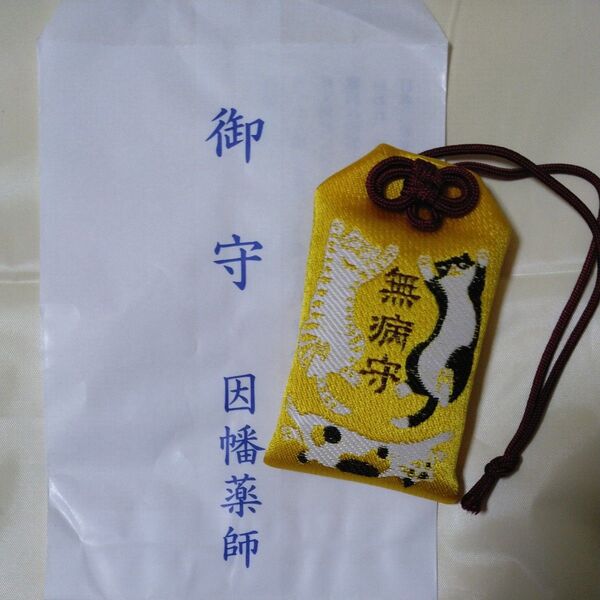 御守
因幡薬師
無病守